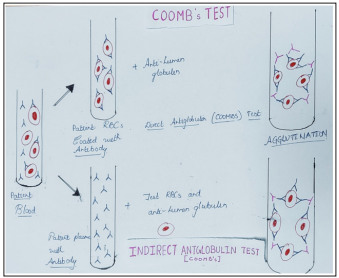 COOMB's TEST
+ Anti-human
globulin
Patient RBCs
Coated with
Antibody
Direct Antiglobulin (COOMBS) Test
AGGLUTINATION
Patient
Blood
Patient plasma
with
Antibody
+ Test RBCs and
anti-human globulin
INDIRECT ANTIGLOBULIN TEST
[COOMB's]